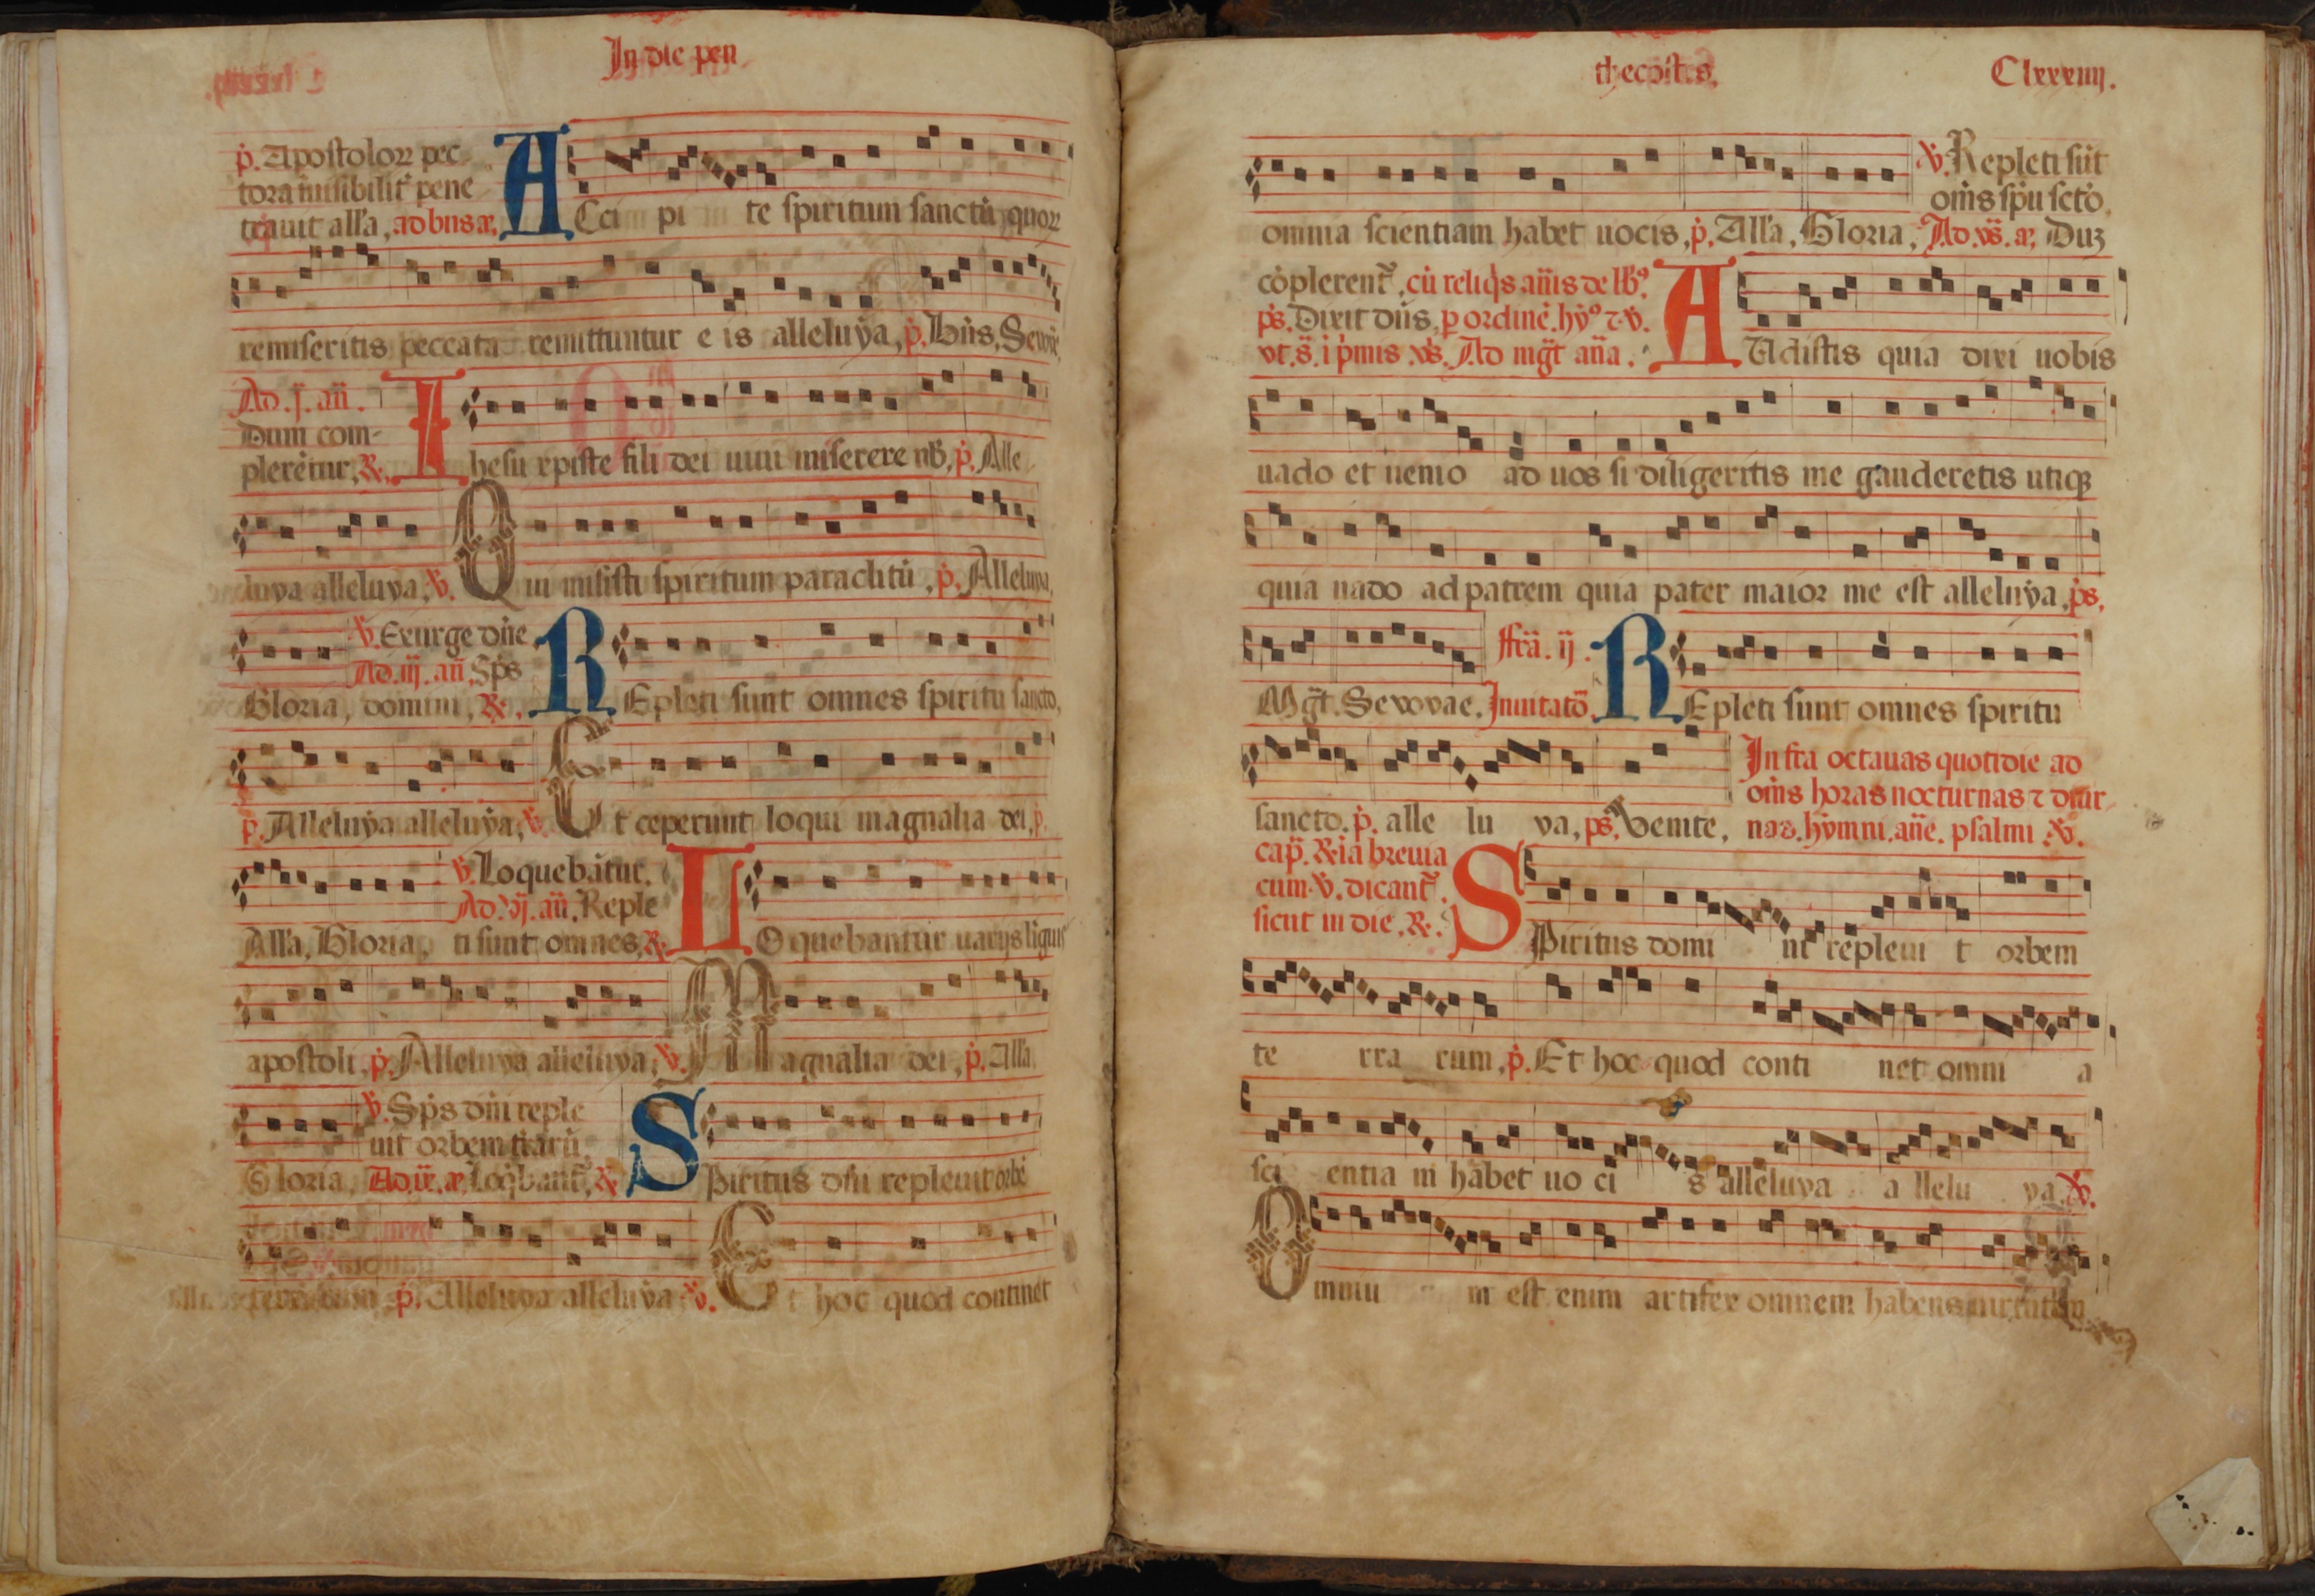 In die pen
p. Apostoloꝝ pec
tora inuisibilit̄ pene
trauit all'a, ad bn̄s a.
ACci pi te spiritum sanctū quoꝝ
remiseritis peccata remittuntur e is alleluÿa, p. Bn̄s, Seuouae
Ad .j. an̄.
Dum com-
plerētur, ℞.
Ihesu xpiste fili dei uiui miserere nb̄, p. Alle
luya alleluya, ℣. Qui misisti spiritum paraclitū, p. Alleluya,
℣. Exurge dn̄e
Ad .iij. an̄. Sps
Gloria, domini, ℞.
REpleti sunt omnes spiritu sancto,
p. Alleluÿa alleluÿa, ℣. Et ceperunt loqui magnalia dei, p.
℣. Loquebātur,
Ad .vj. an̄. Reple
All'a, Gloria, ti sunt omnes, ℞.
LOquebantur uarijs liguis
apostoli, p. Alleluya alleluya, ℣. Magnalia dei, p. All'a
℣. Sps dn̄i reple
uit orbem t̄raꝝ,
Gloria, Loq̄bant̄, ℞
SPiritus dn̄i repleuit orbē
p. Alleluya alleluya ℣. Et hoc quod continet
thecostes. Clxxxiiij.
℣. Repleti sūt
om̄s sp̄u sctō,
omnia scientiam habet uocis, p. All'a, Gloria, Ad .vs̄. a. Duꝫ
cōplerent̄, cū reliq̄s an̄is de lb̄ꝰ
ps. Dixit dn̄s, p ordinē. hȳꝰ ⁊ ℣.
vt .s̄. ī pͥmis vs̄. Ad mḡt an̄a.
AUdistis quia dixi uobis
uado et uenio ad uos si diligeritis me gauderetis utiqꝫ
quia uado ad patrem quia pater maior me est alleluÿa, ps,
Mḡt. Seuovae. Inuitatō. fr̄a. ij.
REpleti sunt omnes spiritu
sancto. p. alle lu ya, ps, Venite,
Infra octauas quotidie ad
om̄s horas nocturnas ⁊ diur
nas. hÿmni. an̄e. psalmi ℣.
cap̄. ℞ia breuia
cum ℣. dicant̄.
sicut in die, ℞.
SPiritus domi ni repleui t orbem
te rra rum, p. Et hoc quod conti net omni a
sci entia m habet uo ci s alleluya a llelu ya ℣.
Omniu m est enim artifex omnem habens uirtutem